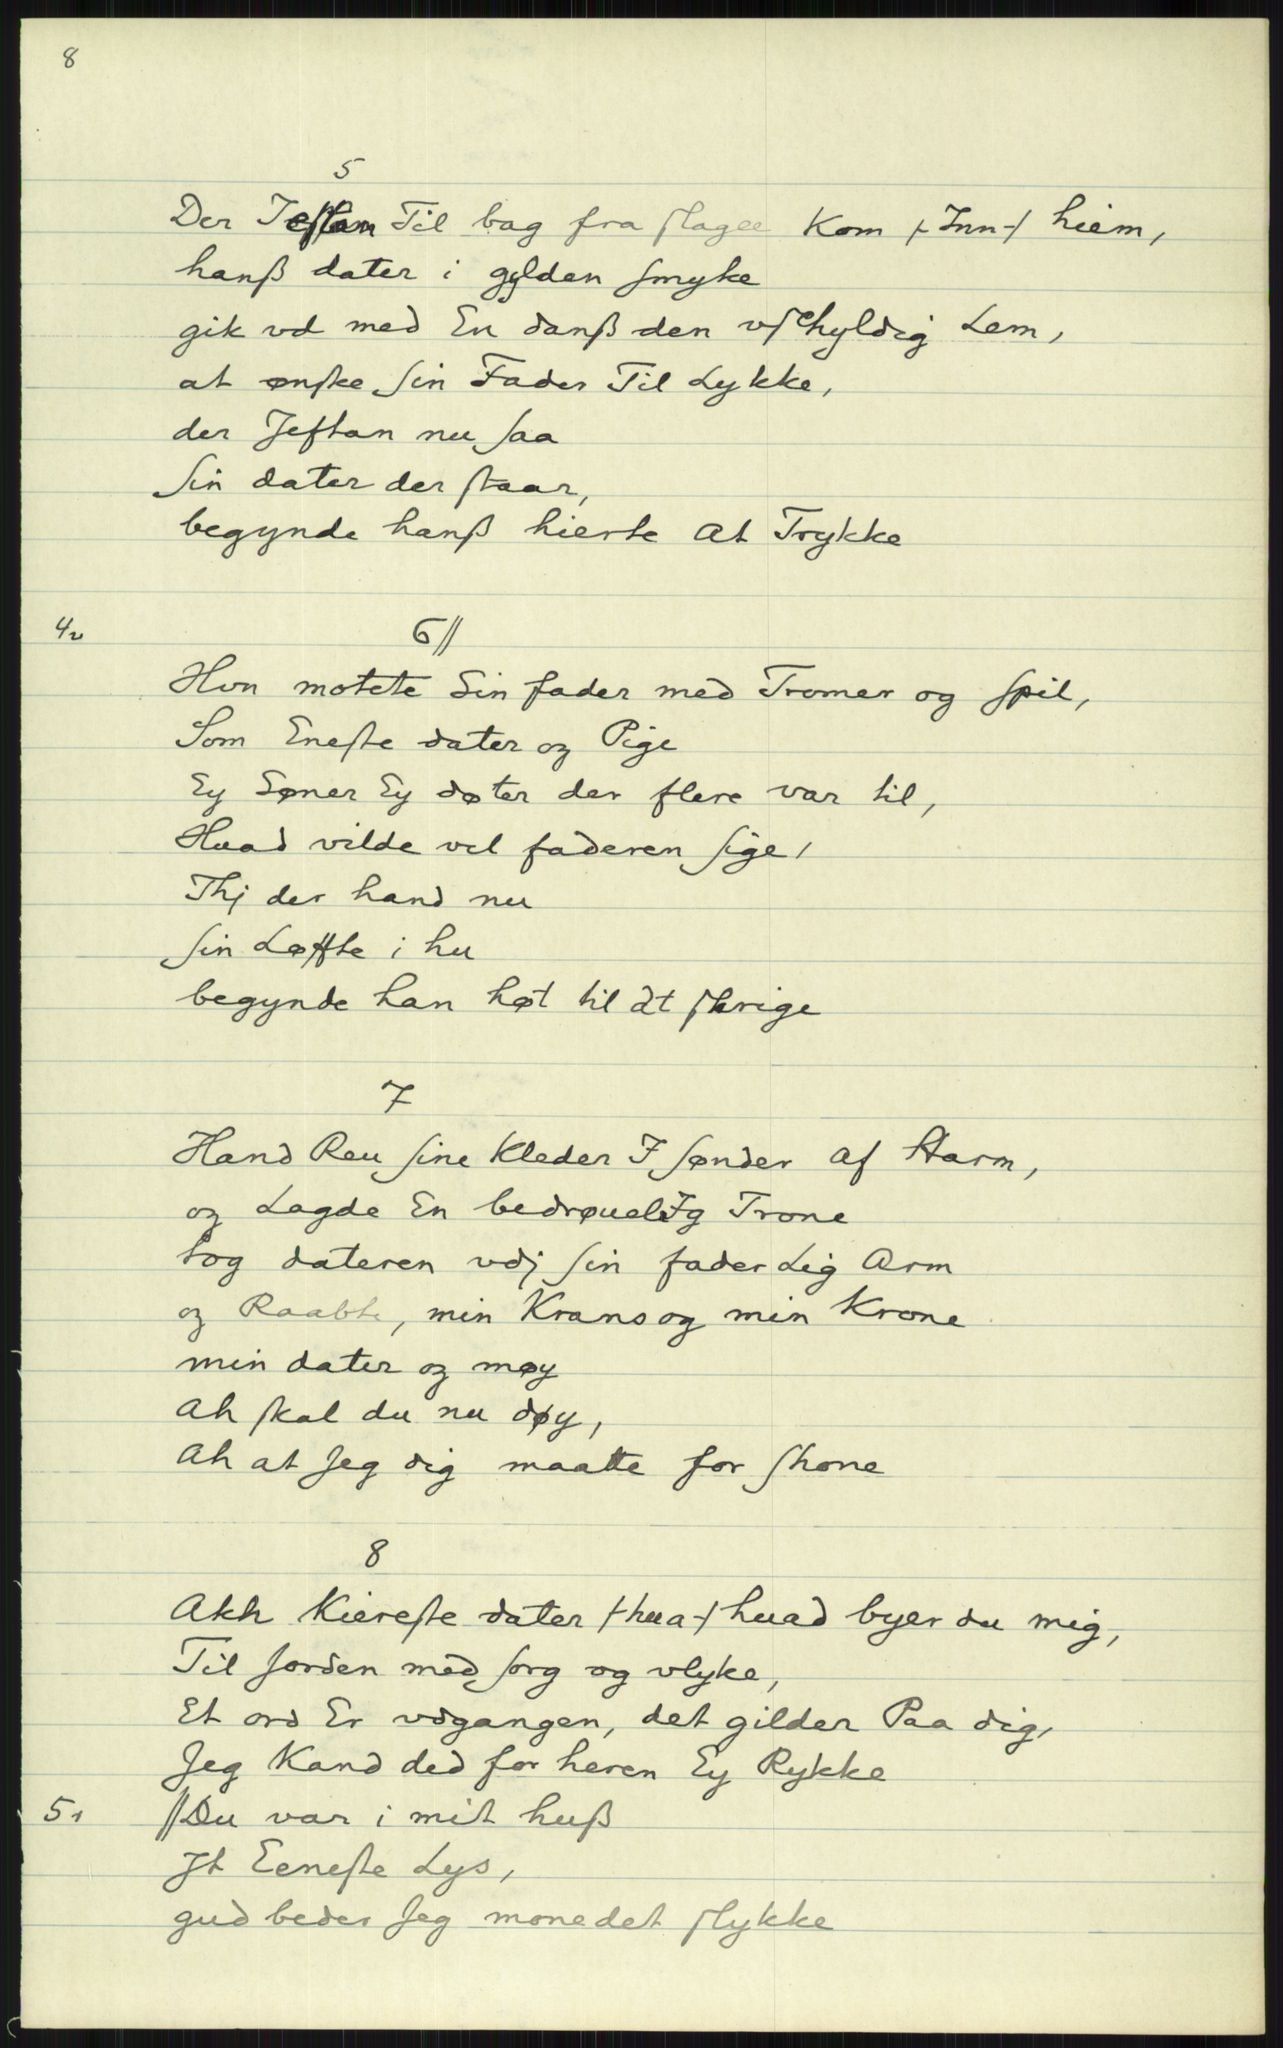 8
5
Der Jeftan Til bag fra slagee Kom /-Inn-/ hiem,
hanß dater i gylden smyke
gik vd med En danß den vschyldig Lem,
at ønske sin Fader Til Lykke,
der Jeftan nu saa
sin dater der staar,
begynde hanß hierte At Trykke
4v 6//
Hvn motete Sin fader med Tromer og spil,
Som Eneste dater og Pige
Ey Søner Ey døter der flere var til,
Huad vilde vel faderen sige,
Thj der hand nu
sin Løffte i hu
begynde han høt til at skrige
7
Hand Reu sine Kleder I sønder af Harm,
og Lagde En bedrøuelIg Trone
tog dateren vdj sin fader Lig Arm
og Raabte, min Krans og min Krone
min dater og møy
Ah skal du nu døy,
Ah at Jeg dig maatte for skone
8
Akh Kiereste dater /-hua-/ huad byer du mig,
Til Jorden med sorg og vlyke,
Et ord Er vdgangen, det gilder Paa dig,
Jeg Kand ded for heren Ey Rykke
5r //Du var i mit huß
Jt Eeneste Lys,
gud beder Jeg mone det slykke